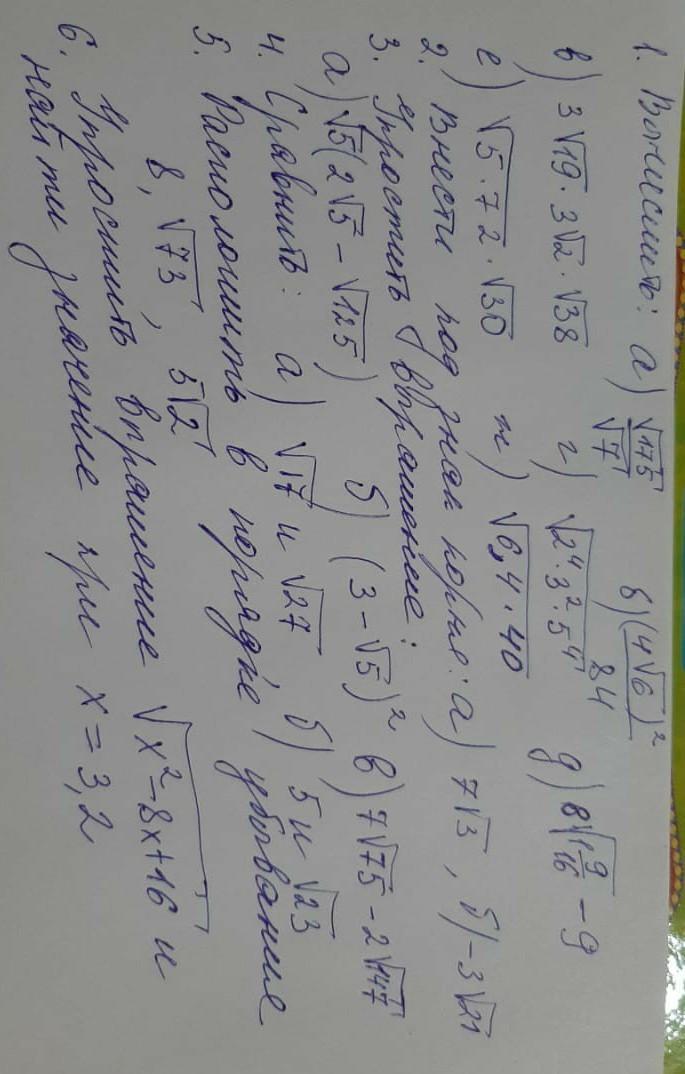 1. Вычислить: а) √175/√7 б) (4√6)²/24
в) 3√19 · 3√2 · √38 г) √2⁴·3²·5⁴ д) 8√1 9/16 - 9
е) √5·72 · √30 ж) √6,4·40
2. Внести под знак корня: а) 7√3, б) -3√21
3. Упростить выражение:
а) √5(2√5 - √125) б) (3-√5)² в) 7√75 - 2√147
4. Сравнить: а) √17 и √27 б) 5 и √23
5. Расположить в порядке убывания
8, √73, 5√2
6. Упростить выражение √x²-8x+16 и
найти значение при x = 3,2